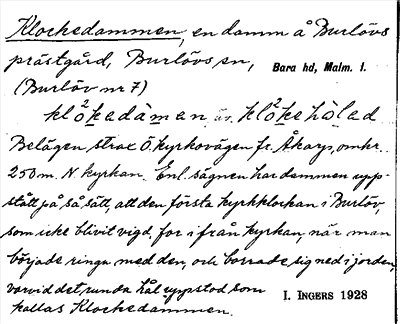 Klockedammen, en damm å Burlövs
prästgård, Burlövs sn, Bara hd, Malm. l.
(Burlöv nr 7)
klö²kedämen äv. klö²kehólad
Belägen strax Ö. kyrkovägen fr. Åkarp, omkr.
250 m. N. kyrkan. Enl. sägnen har dammen upp-
stått på så sätt, att den första kyrkklockan i Burlöv,
som icke blivit vigd, for ifrån kyrkan, när man
började ringa med den, och borrade sig ned i jorden,
varvid det runda hål uppstod som
kallas Klockedammen.
I. INGERS 1928